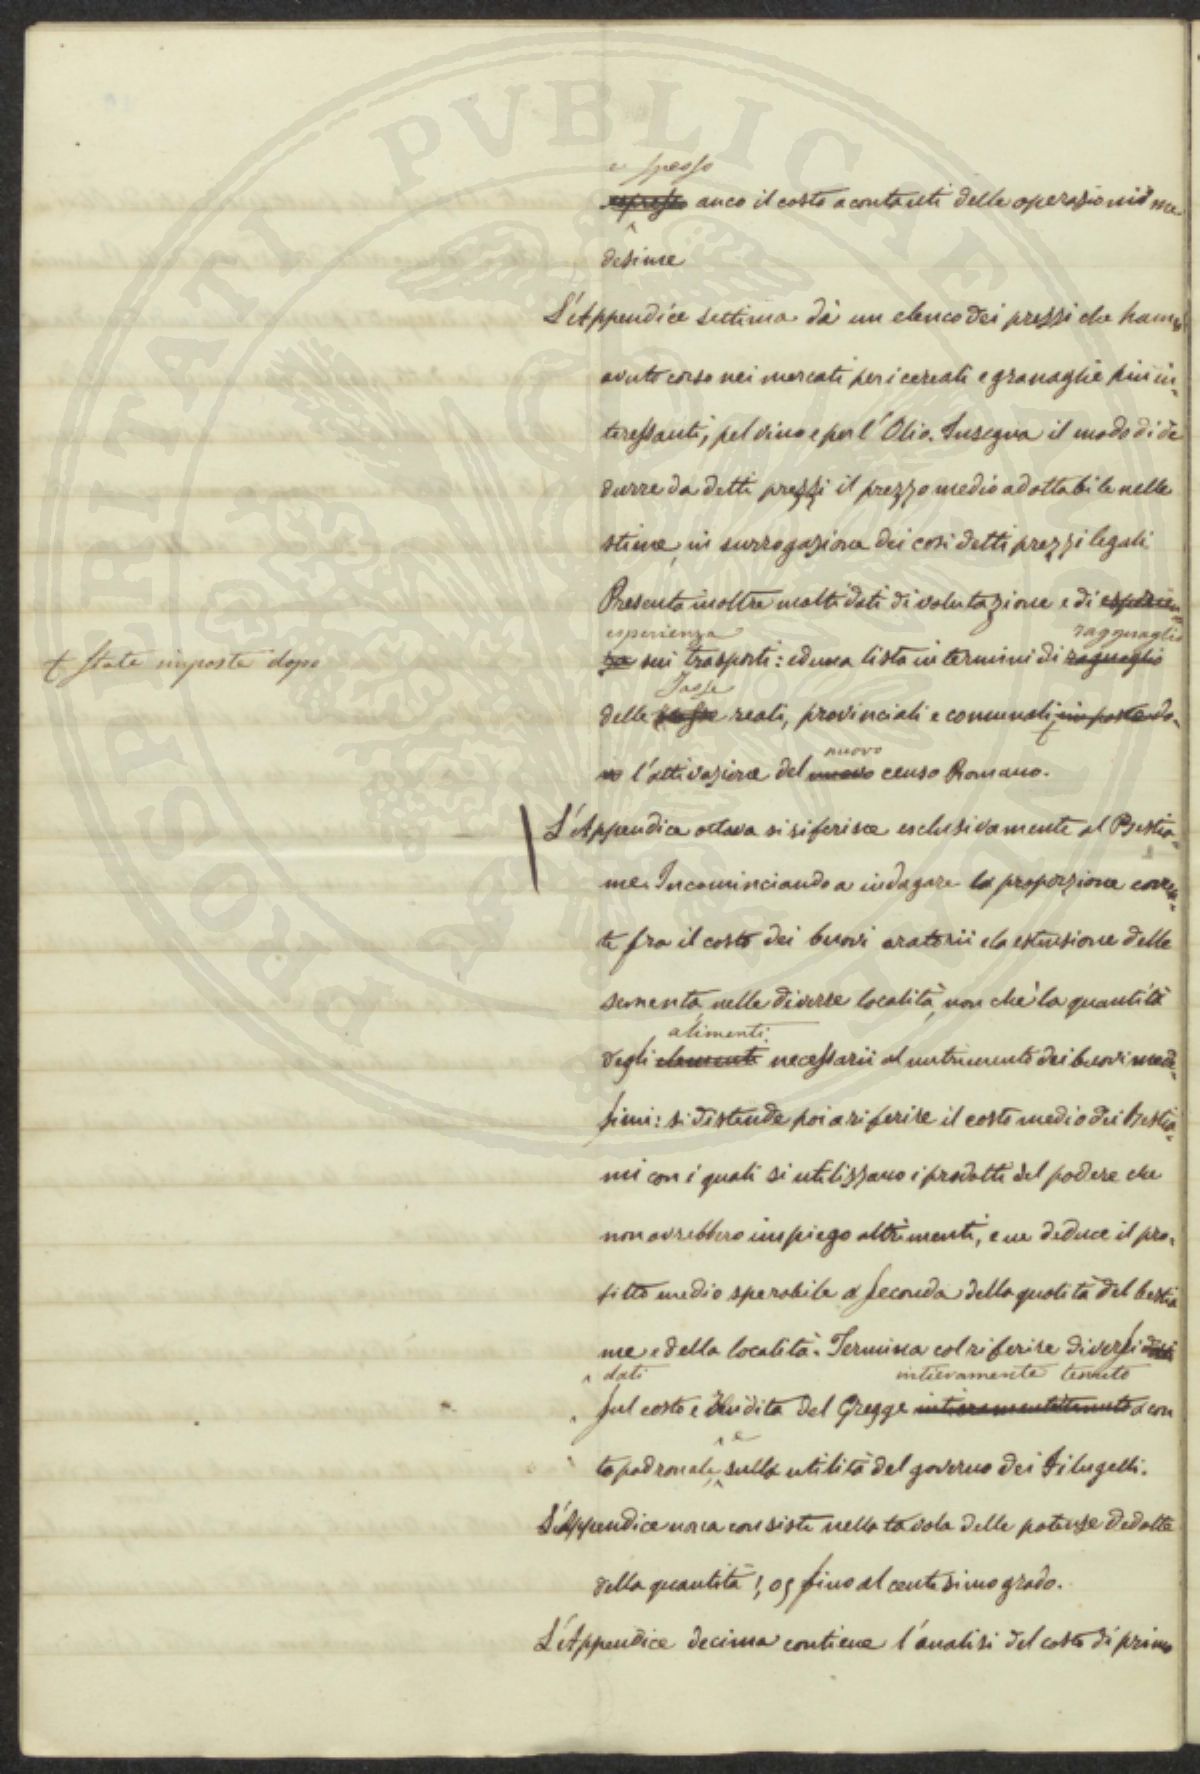 PROSPERITATI PVBLICAE AVGENDAE
e spesso
espresso anco il costo a contanti delle operazioni me
desime
L'Appendice settima dà un elenco dei prezzi che hanno
avuto corso nei mercati per i cereali e granaglie più in-
teressanti, pel vino e per l'Olio. Insegna il modo di de
durre da detti prezzi il prezzo medio adottabile nelle
stime, in surrogazione dei così detti prezzi legali
Presenta inoltre molti dati di valutazione e di esperien-
esperienza ragguaglio
za sui trasporti: ed una lista in termini di raguaglio
+ state imposte dopo
Tasse
delle tasse reali, provinciali e comunali imposte do-
nuovo
po l'attivazione del nuovo censo Romano.
L'Appendice ottava si riferisce esclusivamente al Bestia-
me. Incominciando a indagare la proporzione corren-
te fra il costo dei buovi aratorii e la estensione delle
sementa nelle diverse località, non chè la quantità
alimenti
degli elementi necessarii al nutrimento dei buovi mede-
simi: si distende poi a riferire il costo medio dei Bestia-
mi con i quali si utilizzano i prodotti del podere che
non avrebbero impiego altrimenti, e ne deduce il pro-
fitto medio sperabile a seconda della qualità del bestia
me e della località. Termina col riferire diversi dati
dati intieramente tenuto
sul costo e rendita del Gregge intieramente tenuto a con
e
to padronale sulla utilità del governo dei Filugelli.
L'Appendice nona consiste nella tavola delle potenze dedotte
della quantità 1,05 fino al centesimo grado.
L'Appendice decima contiene l'analisi del costo di primo